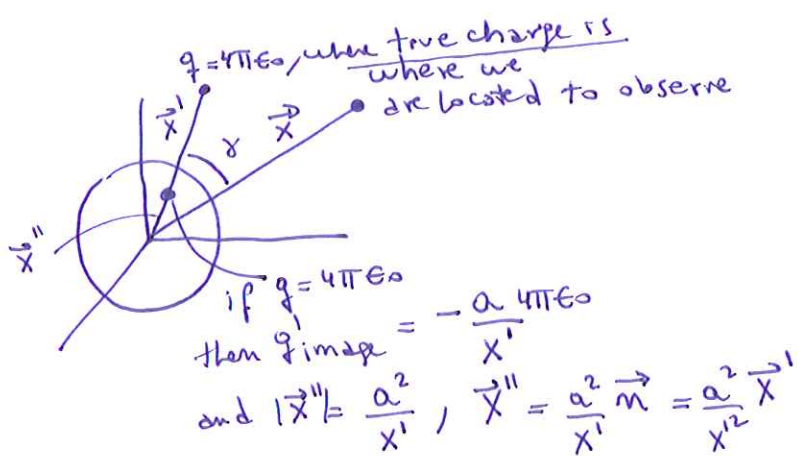 q = 4πε₀, where true charge is
where we
are located to observe
x⃗'
γ
x⃗
x⃗''
if q = 4πε₀
then q'image = - a 4πε₀ / x'
and |x⃗''| = a² / x' , x⃗'' = a² / x' n⃗ = a² / x'² x⃗'